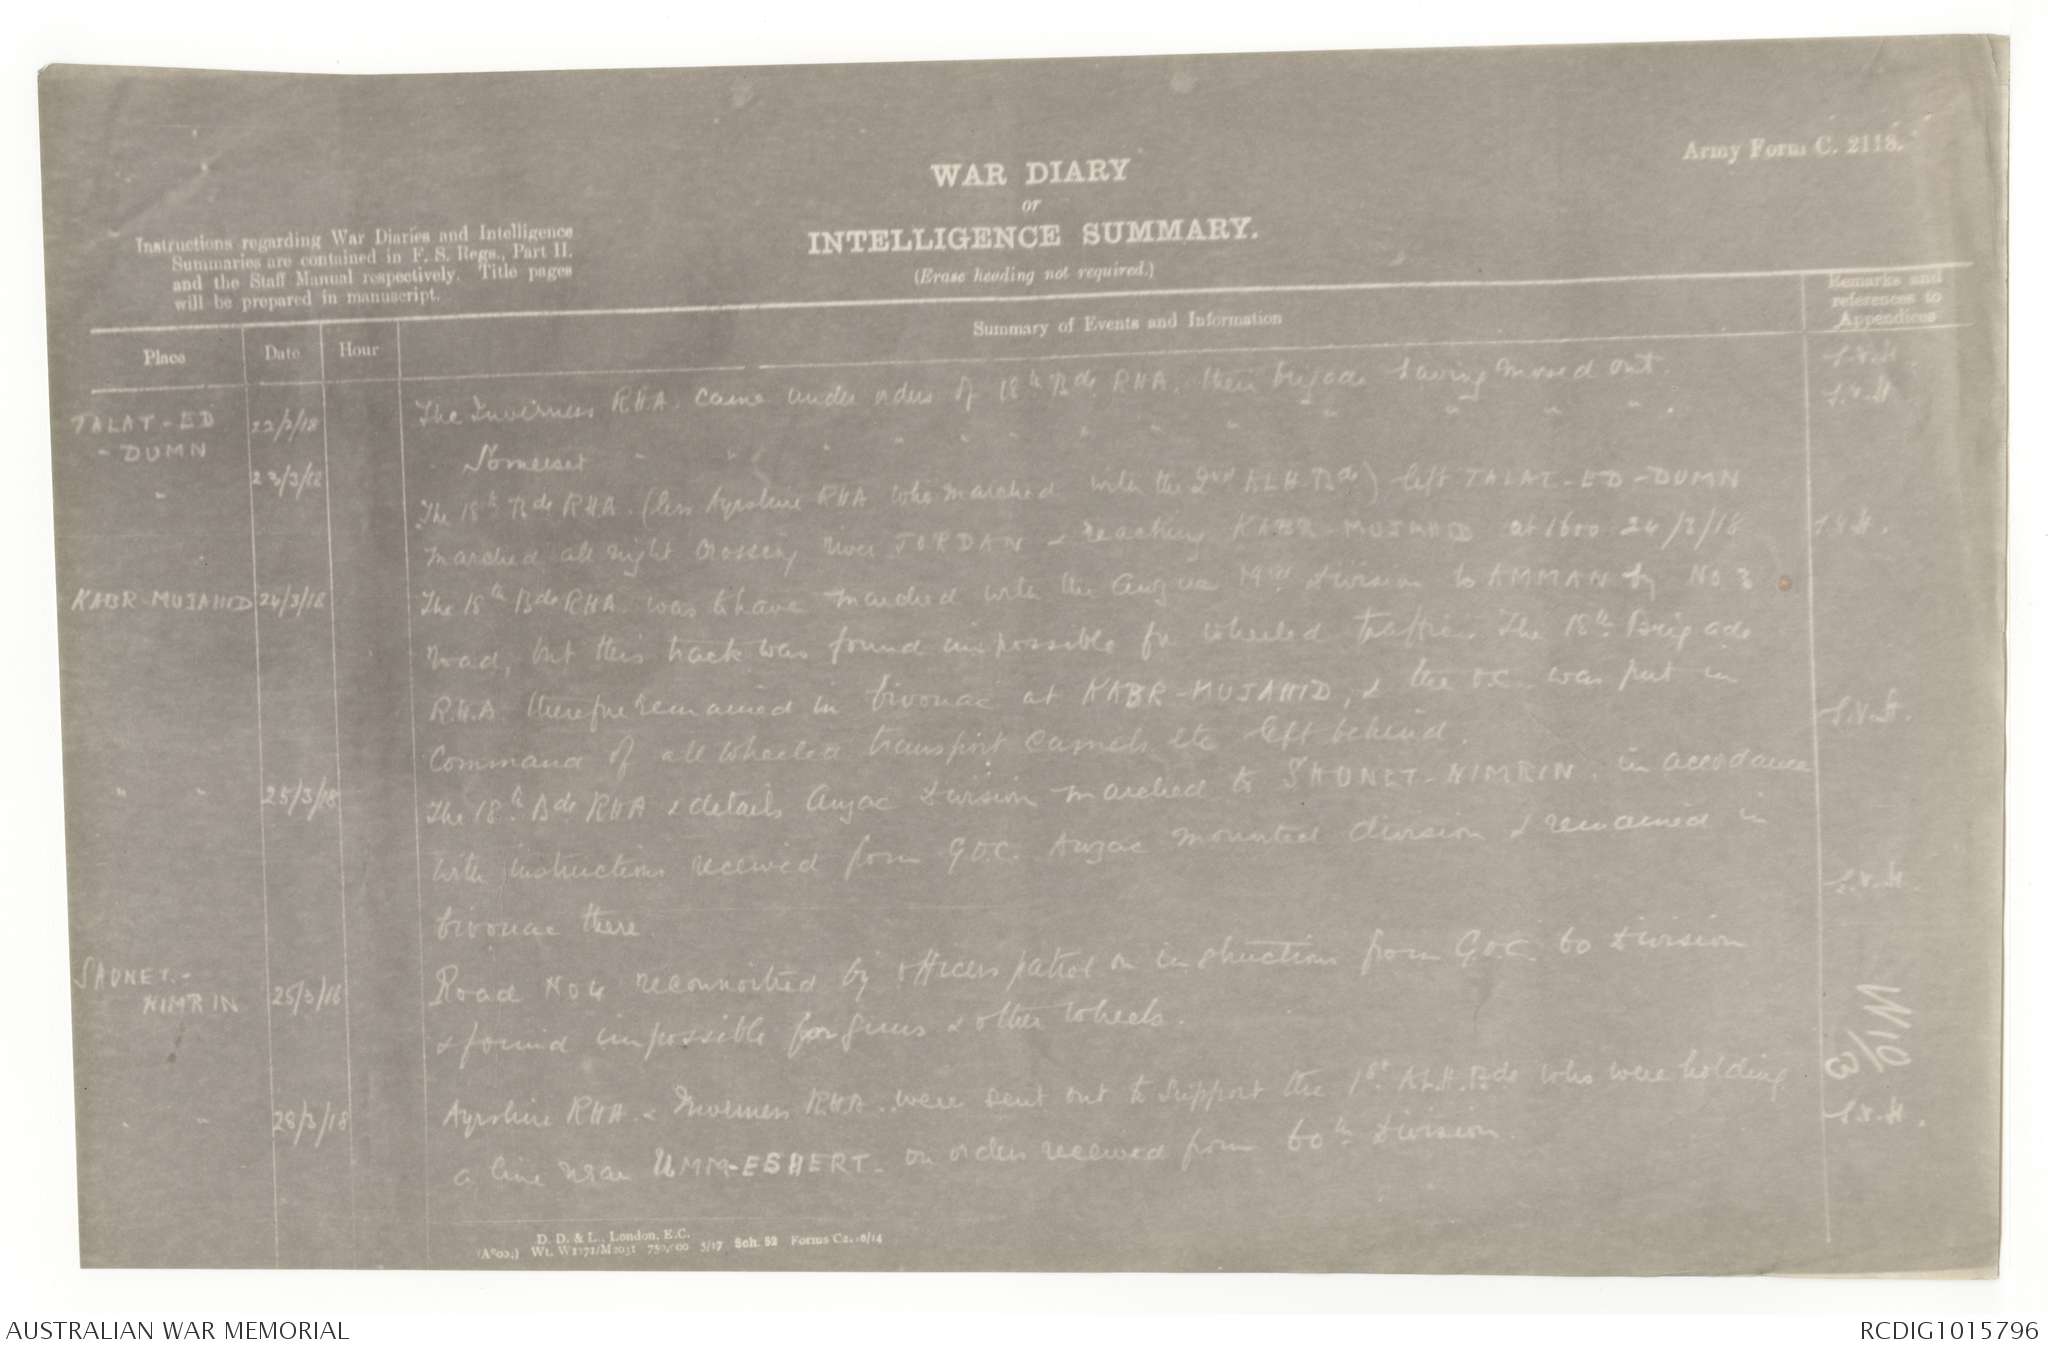 Army Form C. 2118.
WAR DIARY
or
INTELLIGENCE SUMMARY.
(Erase heading not required.)
Instructions regarding War Diaries and Intelligence
Summaries are contained in F. S. Regs., Part II.
and the Staff Manual respectively. Title pages
will be prepared in manuscript.
Place
Date
Hour
Summary of Events and Information
Remarks and
references to
Appendices
TALAT-ED
-DUMN
22/3/18
The Inverness RHA. came under orders of 18th Bde RHA. their brigade having moved out.
" Somerset " " " " " " " " " " " " "
" 23/3/18
The 18th Bde RHA. (less Ayrshire RHA who marched with the 2nd ALH Bde) left TALAT-ED-DUMN
marched all night crossing river JORDAN & reaching KABR-MUJAHID at 1600 24/3/18
KABR-MUJAHID 24/3/18
The 18th Bde RHA. was to have marched with the Anzac Mtd Division to AMMAN by No 3
road, but this track was found impossible for wheeled traffic. The 18th Brigade
R.H.A. therefore remained in bivouac at KABR-MUJAHID, & the O.C. was put in
Command of all wheeled transport camels etc left behind.
" " 25/3/18
The 18th Bde RHA & details Anzac Division marched to SHUNET-NIMRIN, in accordance
with instructions received from GOC. Anzac mounted division & remained in
bivouac there.
SHUNET.-
NIMRIN 25/3/18
Road No 4 reconnoitred by officers patrol on instructions from G.O.C. 60 Division
& found impossible for guns & other wheels.
" " 28/3/18
Ayrshire RHA & Inverness RHA. were sent out to support the 1st ALH.Bde who were holding
a line near UMM-ESHERT. on orders received from 60th Division.
D. D. & L., London, E.C.
Wt. W1771/M2031 750,000 5/17 Sch. 52 Forms C2118/14
AUSTRALIAN WAR MEMORIAL
RCDIG1015796